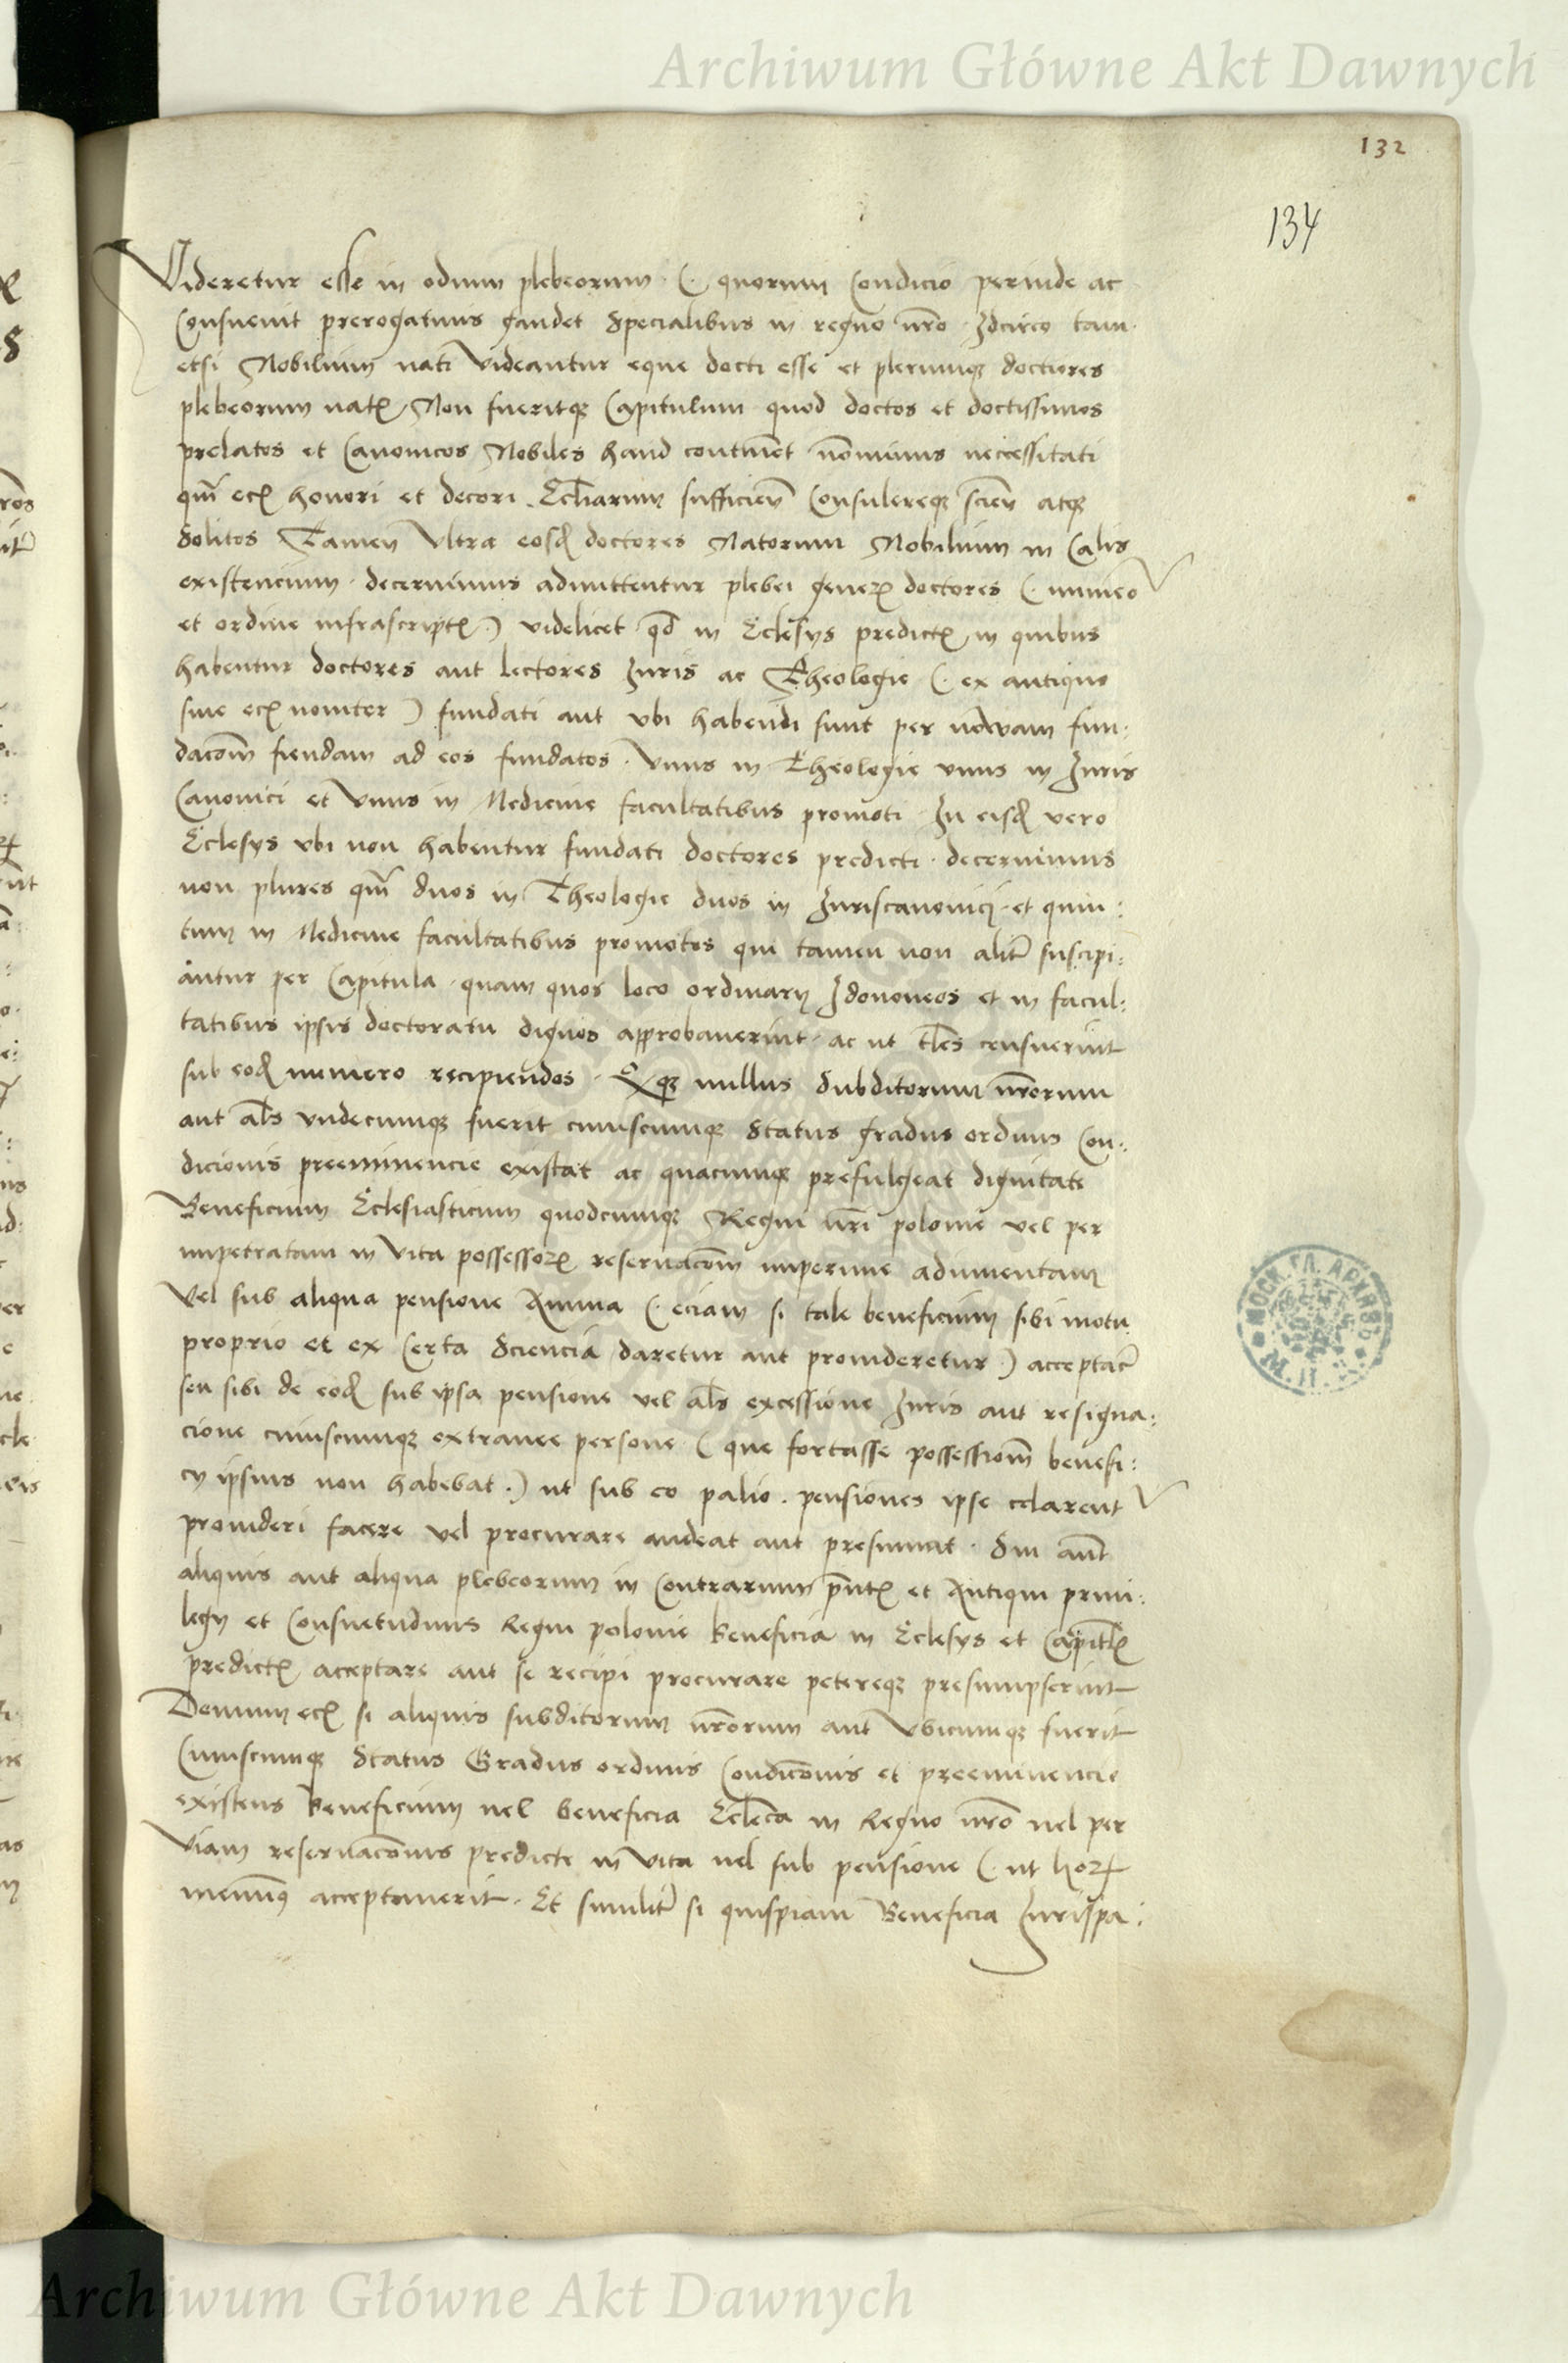 Archiwum Główne Akt Dawnych
132
134
Videretur esse in odium plebeorum (. quorum Condicio perinde ac
Consuevit prerogativis gaudet Specialibus in regno nro Idcirco tam
etsi Nobilium nati Videantur eque docti esse et plerumque doctiores
plebeorum nat Non fueritque Capitulum quod doctos et doctissimos
prelatos et Canonicos Nobiles haud continet nominus neccessitati
qm eci honori et decori Eccliarum sufficien Consulereque scien atque
Solitos Tamen Ultra eosd doctores Natorum Nobilium in Calis
existencium decernimus admittentur plebei gener doctores (. numero
et ordine infrascript .) videlicet qd in Eclesys predict in quibus
habentur doctores aut lectores Iuris ac Theologie (. ex antiquo
sive eci noviter ) fundati aut ubi habendi sunt per novam fun:
dacom fiendam ad eos fundatos Unus in Theologie unus in Iuris
Canonici et Unus in Medicine facultatibus promoti In eisd vero
Eclesys ubi non habentur fundati doctores predicti decernimus
non plures qm duos in Theologie duos in Iuriscanonici et quin:
tum in Medicine facultatibus promotos qui tamen non alit suscipi:
antur per Capitula quam quos loco ordinarii Idononeos et in facul:
tatibus ipsis doctoratu dignos approbaverint ac ut tles censuerint
sub eod numero recipiendos Exque nullus Subditorum nrorum
aut als undecumque fuerit cuiuscumque Status gradus ordinis Con:
dicionis preeminencie existat ac quacumque prefulgeat dignitate
Beneficium Eclesiasticum quodcumque Regni nri polonie vel per
impetratam in Vita possessor reservacom imperime adinventam
Vel sub aliqua pensione Annua (. eciam si tale beneficium sibi motu
proprio et ex Certa Sciencia daretur aut provideretur .) acceptar
seu sibi de eod sub ipsa pensione vel als excessione Iuris aut resigna:
cione cuiuscumque extranee persone (. que fortasse possessiom benefi:
cy ipsius non habebat .) ut sub eo palio pensiones ipse celarent
provideri facere vel procurare audeat aut presumat Sin aut
aliquis aut aliqua plebeorum in Contrarium pnt et Antiqui privi:
legy et Consuetudinis Regni polonie beneficia in Eclesys et Capitl
predict acceptare aut se recipi procurare petereque presumpserint
Demum eci si aliquis subditorum nrorum aut Ubicumque fuerit
Cuiuscumque Status Gradus ordinis Condicionis et preeminencie
existens beneficium vel beneficia Eclca in Regno nro vel per
Viam reservacionis predicte in Vita vel sub pensione (. ut hor
meminimus acceptaverit Et similit si quispiam Beneficia Iurispa:
Archiwum Główne Akt Dawnych